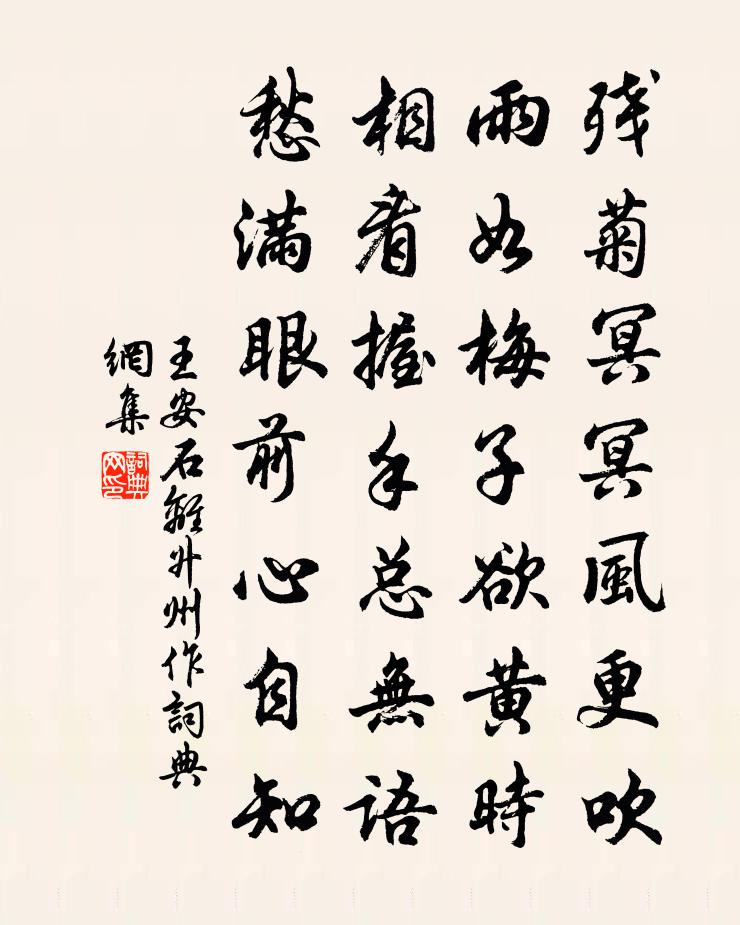 残菊冥冥風更吹
雨如梅子欲黄時
相看握手总無語
愁满眼前心自知
王安石離升州作詞典
網集
詞典網印